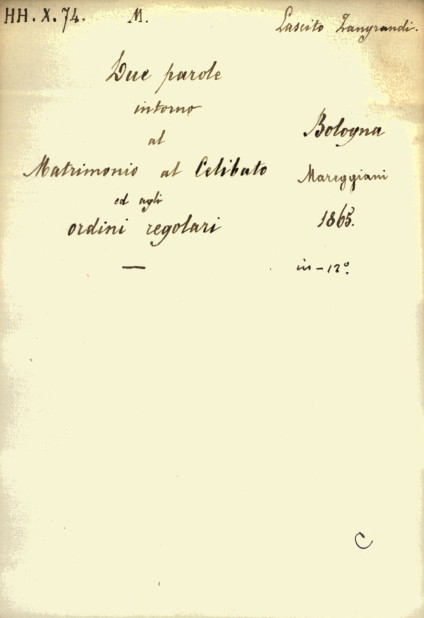 HH. X. 74. M. Lascito Zangrandi.
Due parole
intorno
al
Matrimonio al Celibato
ed agli
ordini regolari
Bologna
Mareggiani
1865.
in-12º.
C